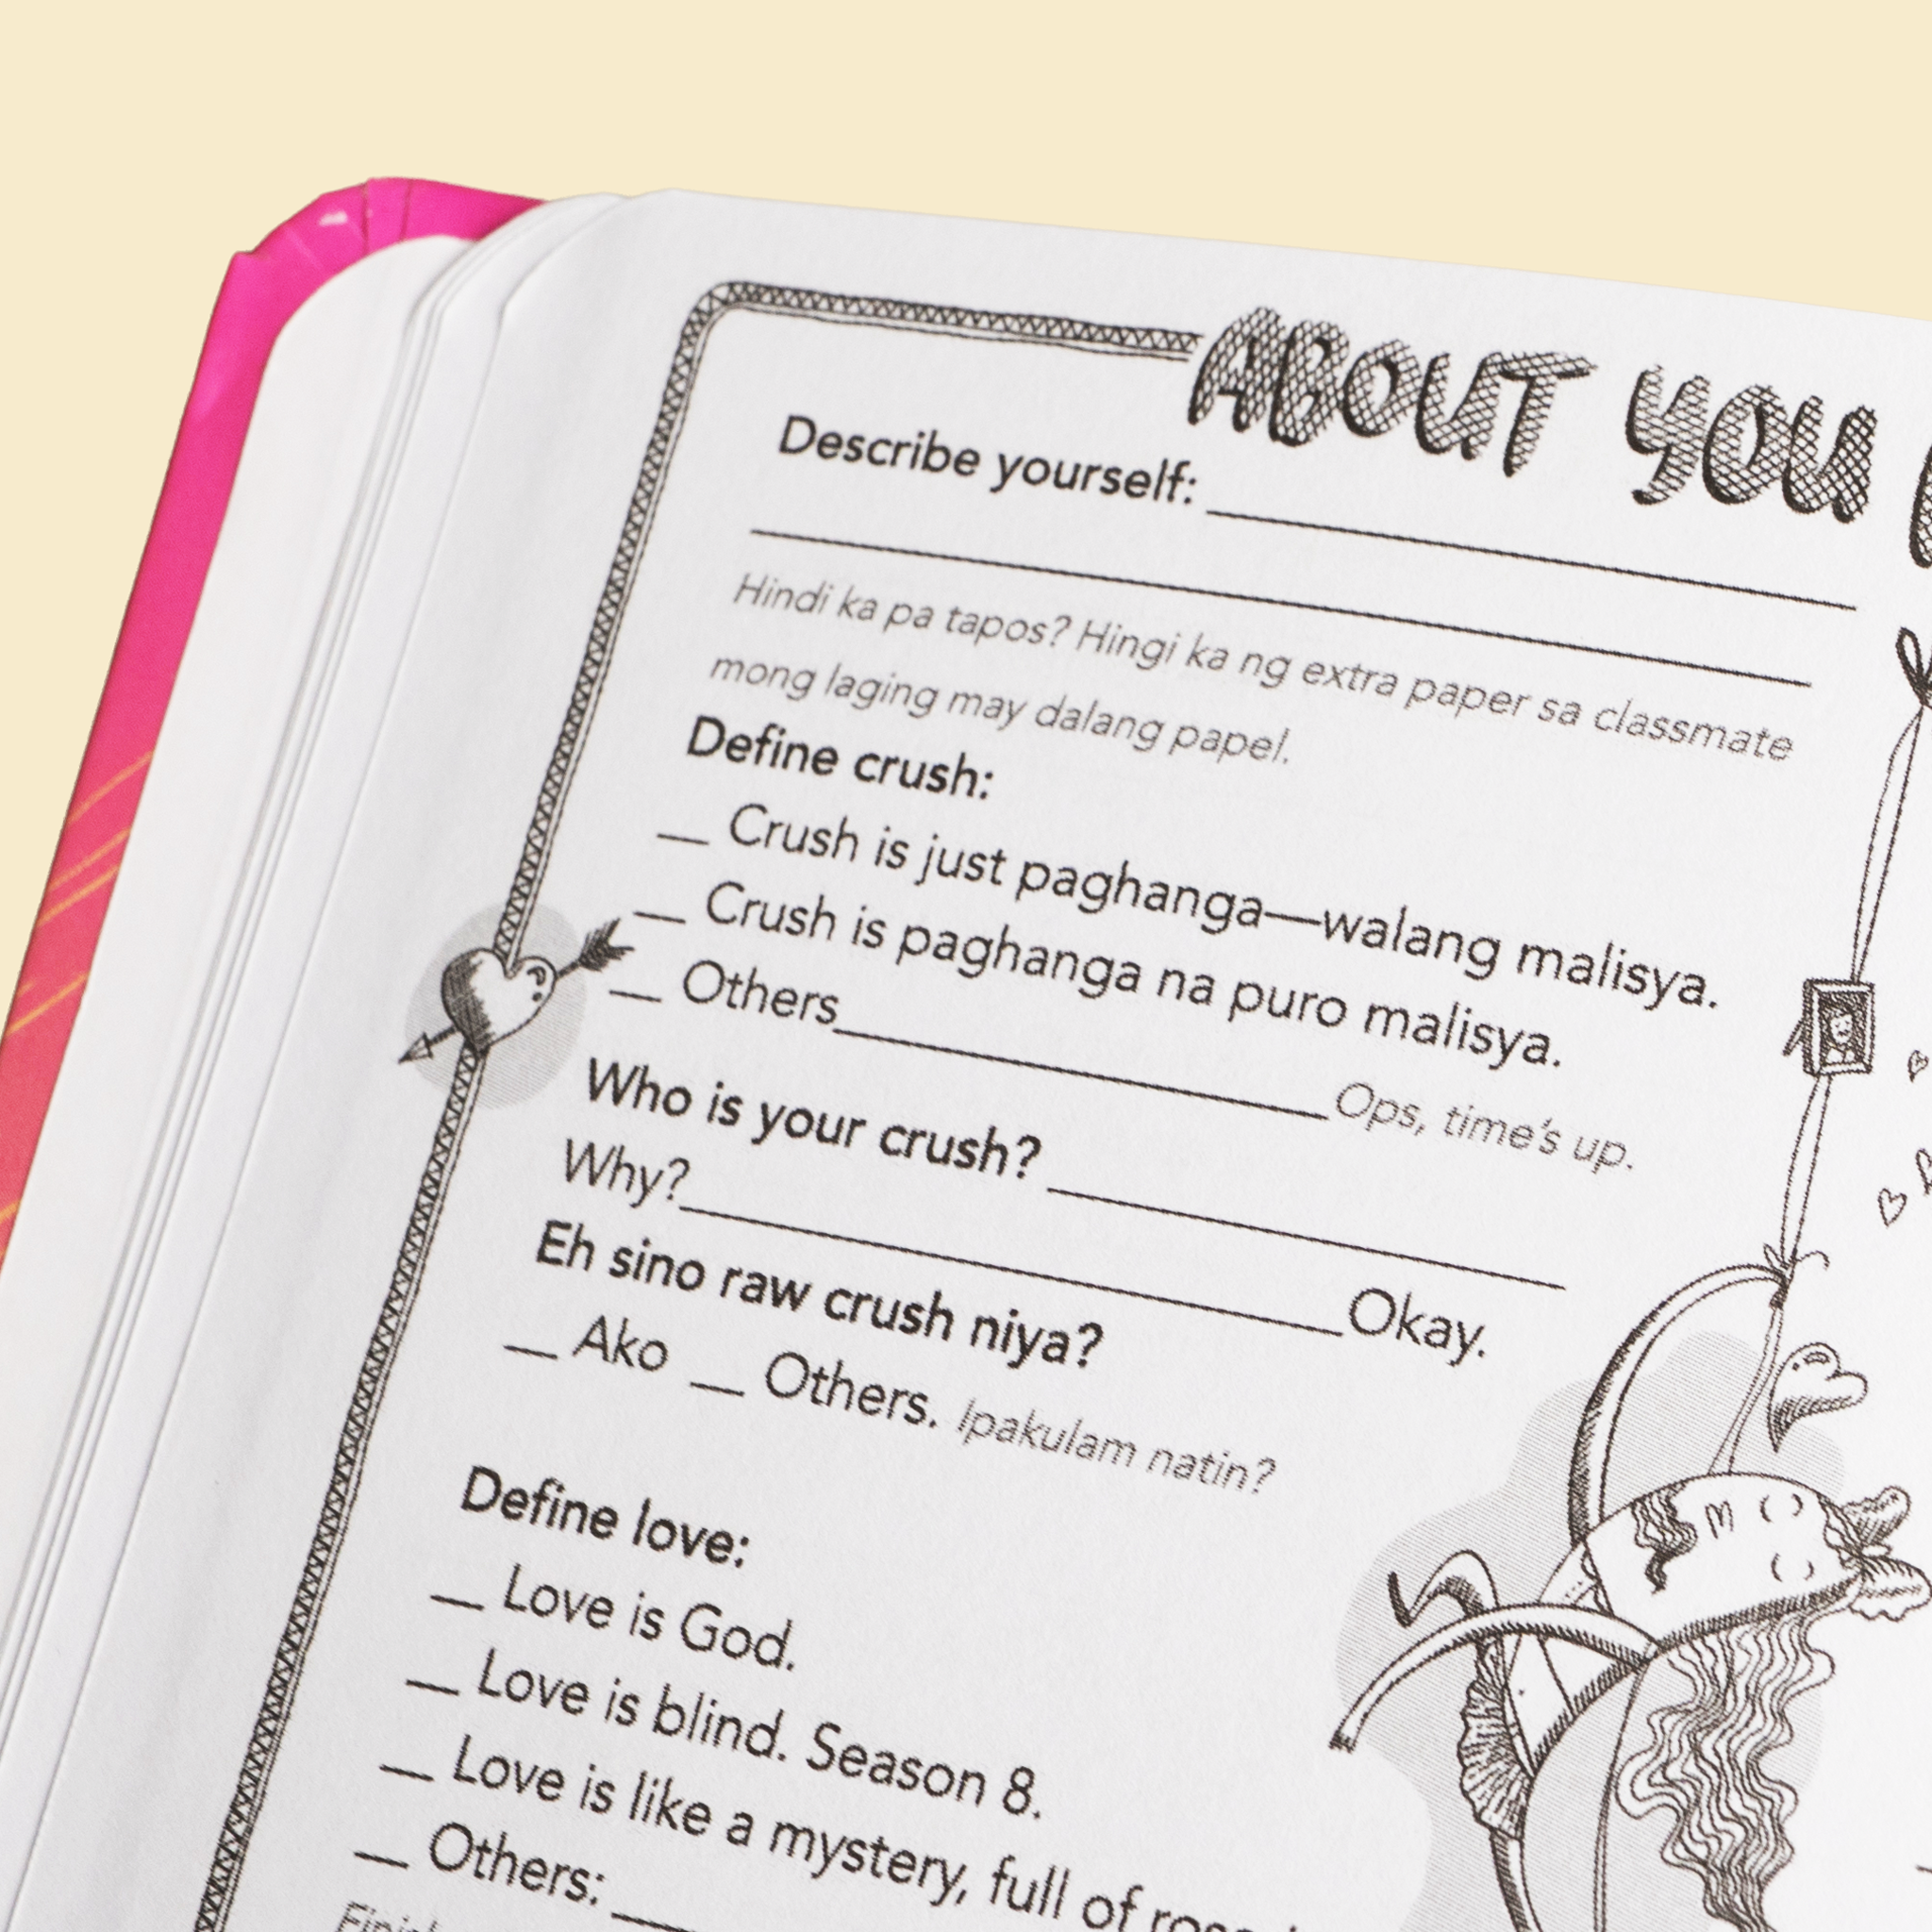 ABOUT YOU
Describe yourself: ____________
____________
Hindi ka pa tapos? Hingi ka ng extra paper sa classmate
mong laging may dalang papel.
Define crush:
__ Crush is just paghanga—walang malisya.
__ Crush is paghanga na puro malisya.
__ Others____________Ops, time's up.
Who is your crush? ____________
Why?____________Okay.
Eh sino raw crush niya?
__ Ako __ Others. Ipakulam natin?
Define love:
__ Love is God.
__ Love is blind. Season 8.
__ Love is like a mystery, full of
__ Others: ____